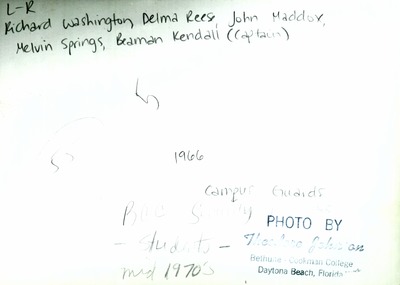 L-R
Richard Washington, Delma Rees, John Maddox,
Melvin Springs, Beaman Kendall (Captain)
1966
Campus Guards
PHOTO BY
- Students -
Bethune-Cookman College
mid 1970's
Daytona Beach, Florida